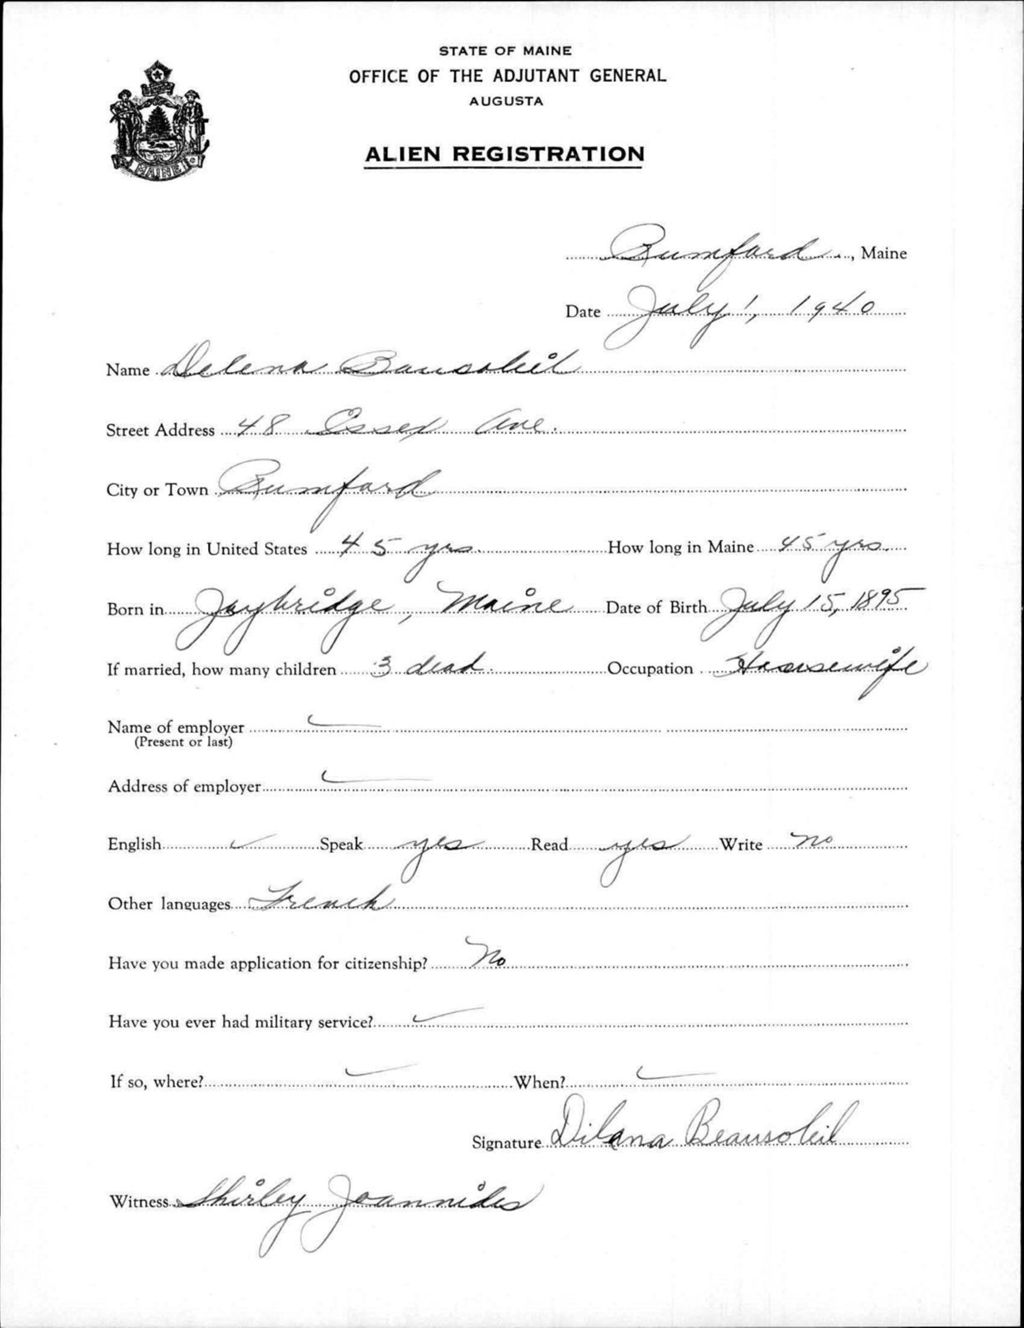 STATE OF MAINE
OFFICE OF THE ADJUTANT GENERAL
AUGUSTA
ALIEN REGISTRATION
MAINE
Rumford, Maine
Date July 1, 1940
Name Delena Bausoleil
Street Address 48 Essex Ave.
City or Town Rumford
How long in United States 45 yrs. How long in Maine 45 yrs.
Born in Jaybridge, Maine Date of Birth July 15, 1895
If married, how many children 3 dead Occupation Housewife
Name of employer
(Present or last)
Address of employer
English Speak yes Read yes Write no
Other languages French
Have you made application for citizenship? No
Have you ever had military service?
If so, where? When?
Signature Dilana Beausoleil
Witness Shirley Joannides